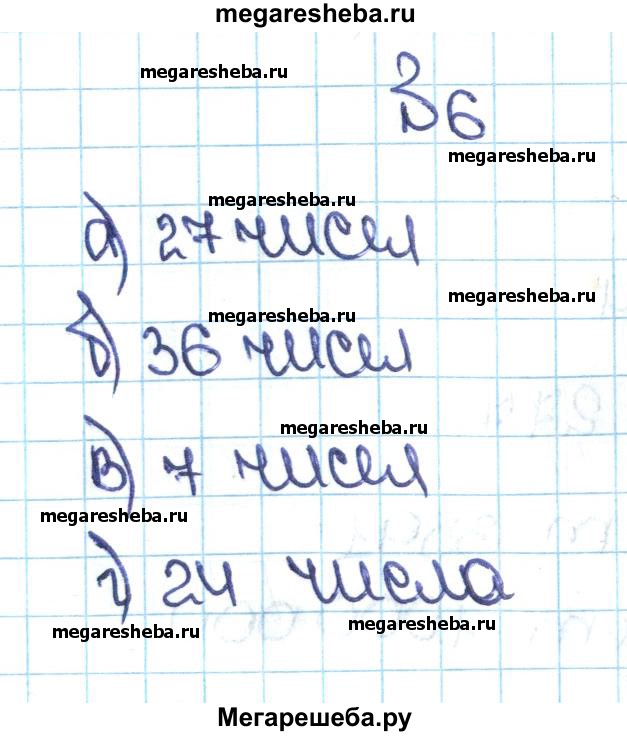 megaresheba.ru
megaresheba.ru
36
megaresheba.ru
megaresheba.ru
а) 27 чисел
megaresheba.ru
б) 36 чисел
megaresheba.ru
в) 7 чисел
megaresheba.ru
г) 24 числа
megaresheba.ru
megaresheba.ru
Мегарешеба.ру